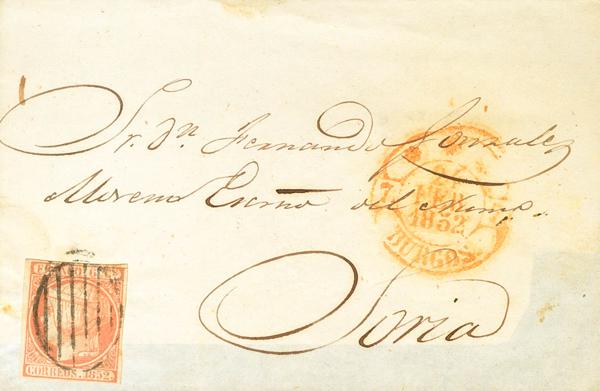 Sr. Dn. Fernando Gonzalez
Moreno Escno del Num.o
Soria
1852
BURGOS
CORREOS. 1852.